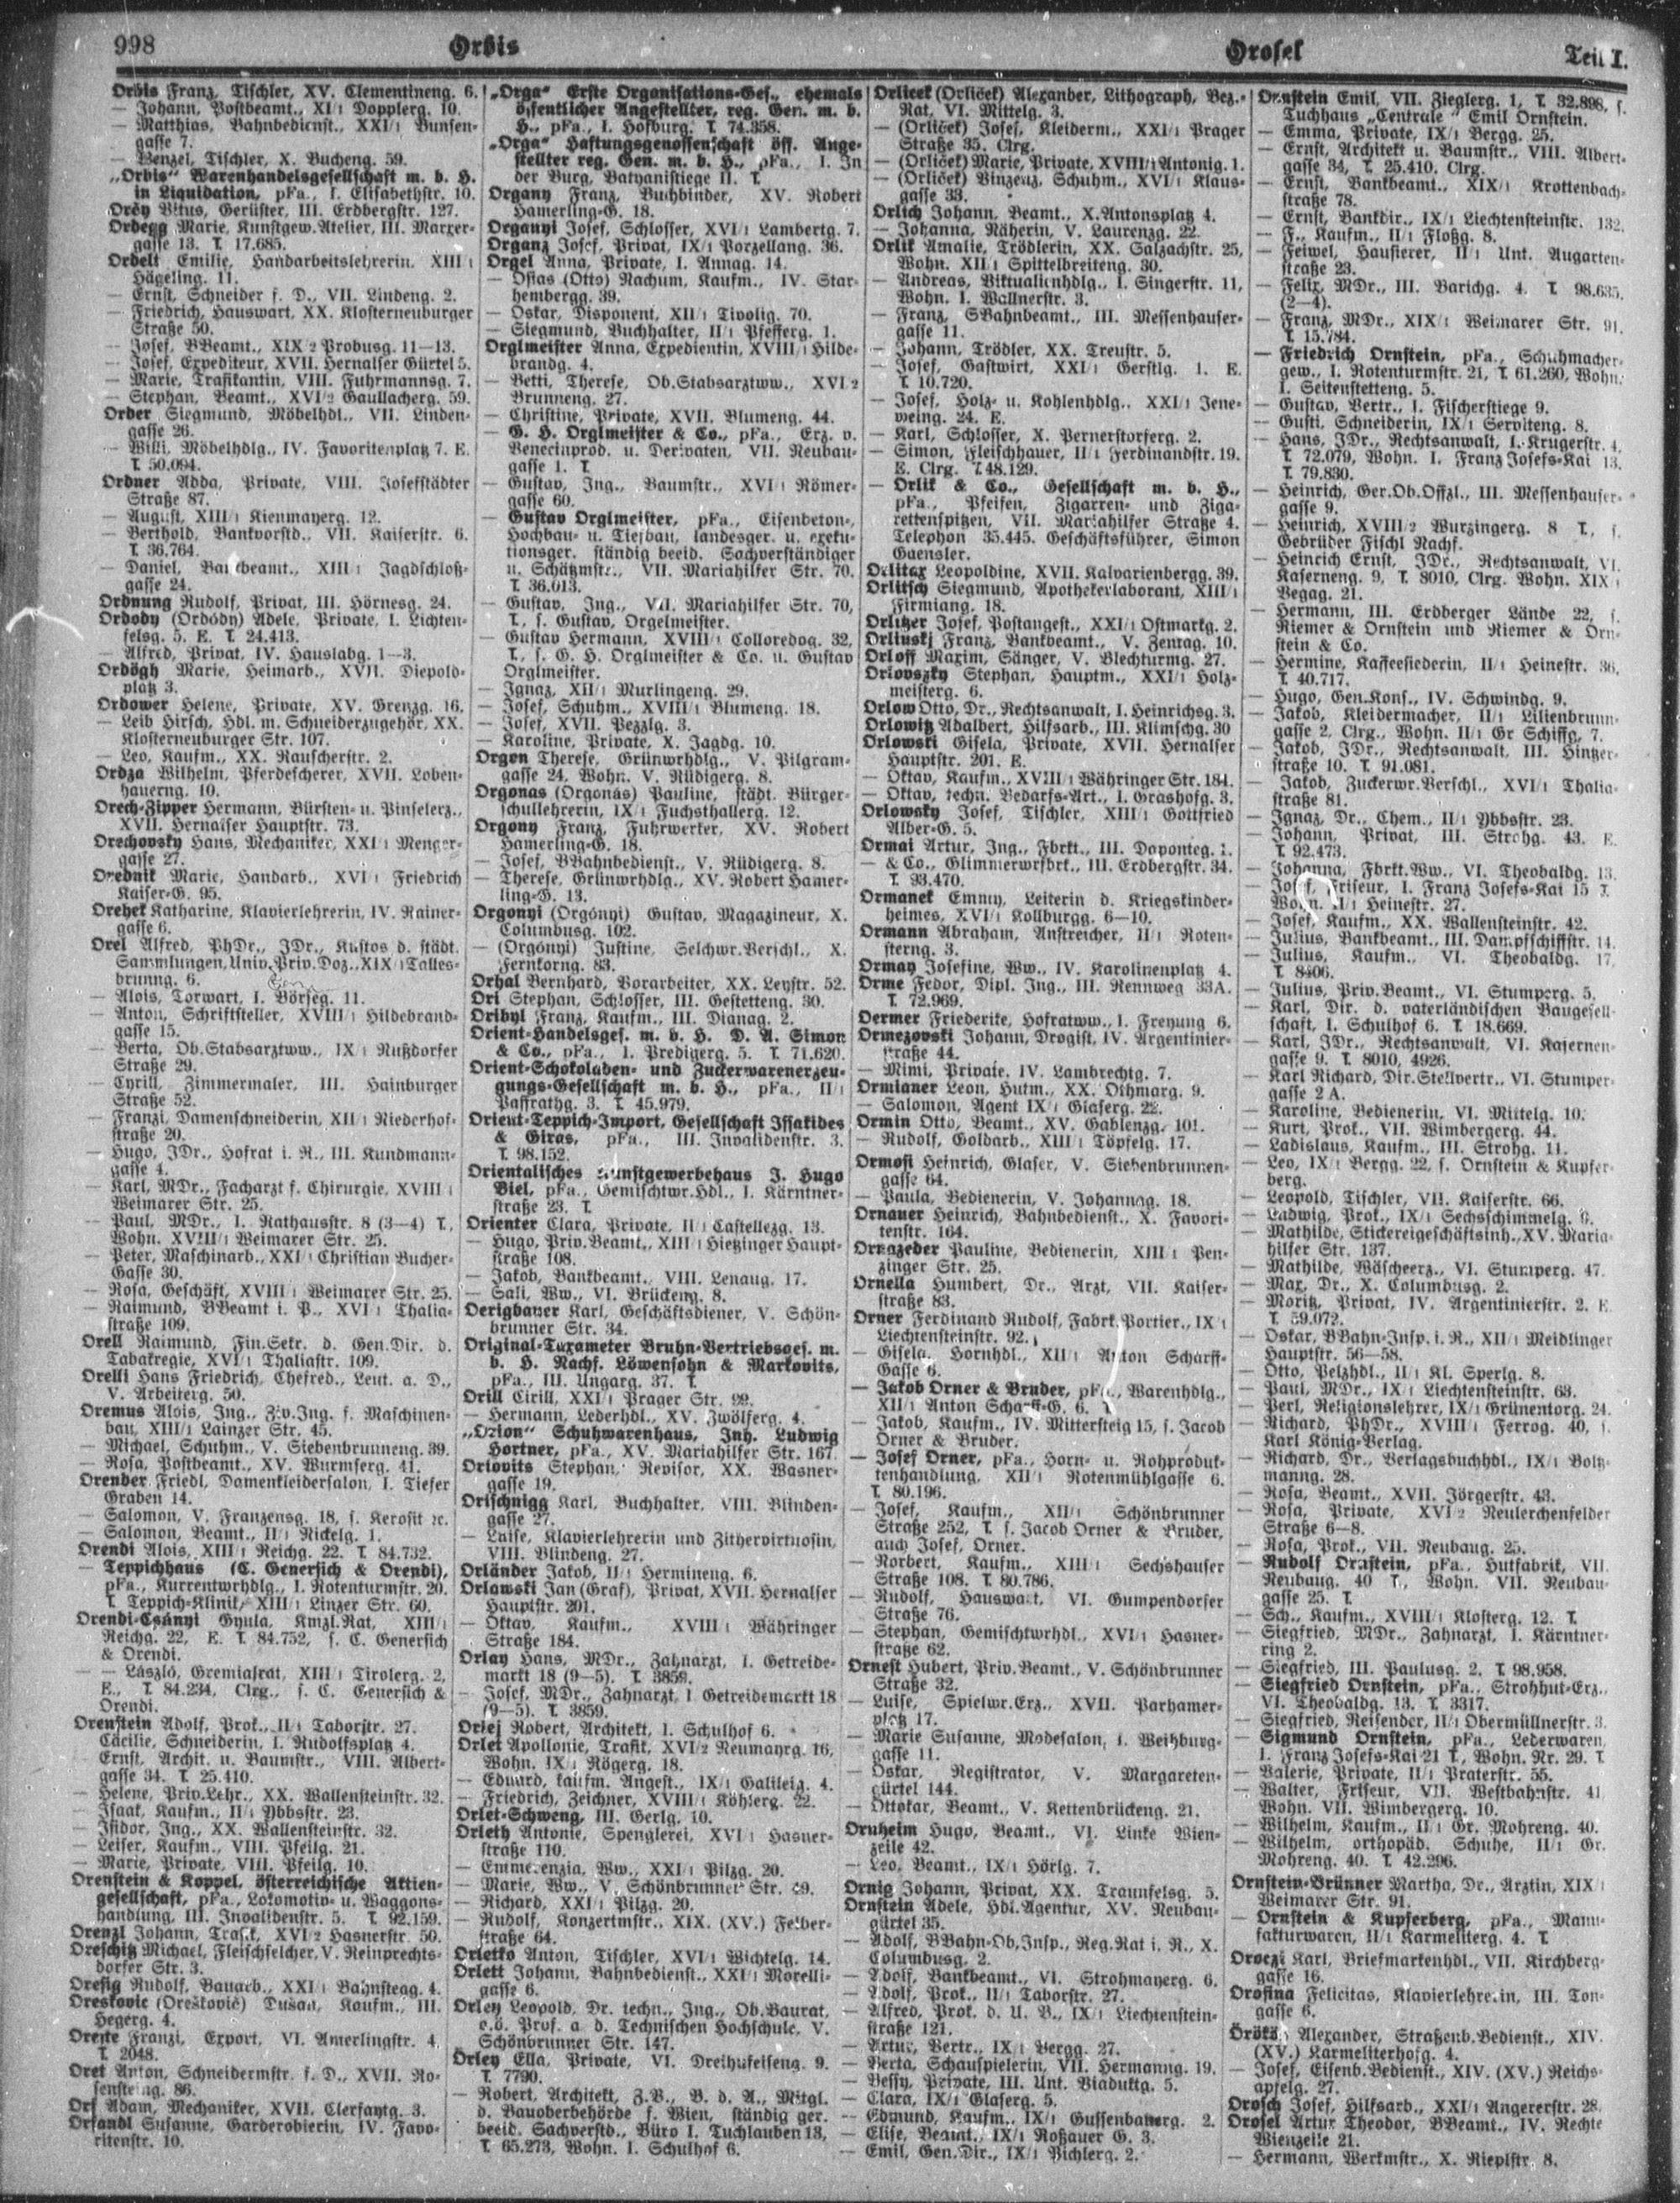 998
Orbis
Orosel
Teil I.
Orbis Franz, Tischler, XV. Clementineng. 6.
— Johann, Postbeamt., XI/1 Dopplerg. 10.
— Matthias, Bahnbedienst., XXI/1 Bunsen-
gasse 7.
— Wenzel, Tischler, X. Bucheng. 59.
„Orbis“ Warenhandelsgesellschaft m. b. H.
in Liquidation, pFa., I. Elisabethstr. 10.
Orčy Vitus, Gerüster, III. Erdbergstr. 127.
Ordegg Marie, Kunstgew.Atelier, III. Marxer-
gasse 13. T. 17.685.
Ordelt Emilie, Handarbeitslehrerin, XIII/1
Hägeling. 11.
— Ernst, Schneider f. D., VII. Lindeng. 2.
— Friedrich, Hauswart, XX. Klosterneuburger
Straße 50.
— Josef, BBeamt., XIX/2 Probusg. 11—13.
— Josef, Expediteur, XVII. Hernalser Gürtel 5.
— Marie, Trafikantin, VIII. Fuhrmannsg. 7.
— Stephan, Beamt., XVI/2 Gaullacherg. 59.
Order Siegmund, Möbelhdl., VII. Linden-
gasse 26.
— Willi, Möbelhdlg., IV. Favoritenplatz 7. E.
T. 50.094.
Ordner Adda, Private, VIII. Josefstädter
Straße 87.
— August, XIII/1 Kienmayerg. 12.
— Berthold, Bankvorstd., VII. Kaiserstr. 6.
T. 36.764.
— Daniel, Bankbeamt., XIII/1 Jagdschloß-
gasse 24.
Ordnung Rudolf, Privat, III. Hörnesg. 24.
Ordody (Ordódy) Adele, Private, I. Lichten-
felsg. 5. E. T. 24.413.
— Alfred, Privat, IV. Hauslabg. 1—3.
Ordögh Marie, Heimarb., XVII. Diepold-
platz 3.
Ordower Helene, Private, XV. Grenzg. 16.
— Leib Hirsch, Hdl. m. Schneiderzugehör, XX.
Klosterneuburger Str. 107.
— Leo, Kaufm., XX. Rauscherstr. 2.
Ordza Wilhelm, Pferdescherer, XVII. Loben-
hauerng. 10.
Orech-Zipper Hermann, Bürsten- u. Pinselerz.,
XVII. Hernalser Hauptstr. 73.
Orechovsky Hans, Mechaniker, XXI/1 Menger-
gasse 27.
Orednik Marie, Handarb., XVI/1 Friedrich
Kaiser-G. 95.
Orehek Katharine, Klavierlehrerin, IV. Rainer-
gasse 6.
Orel Alfred, PhDr., JDr., Kustos d. städt.
Sammlungen, Univ.Priv.Doz., XIX/1 Talles-
brunng. 6.
— Alois, Torwart, I. Börseg. 11.
— Anton, Schriftsteller, XVIII/1 Hildebrand-
gasse 15.
— Berta, Ob.Stabsarztww., IX/1 Nußdorfer
Straße 29.
— Cyrill, Zimmermaler, III. Hainburger
Straße 52.
— Franzi, Damenschneiderin, XII/1 Niederhof-
straße 20.
— Hugo, JDr., Hofrat i. R., III. Kundmann-
gasse 4.
— Karl, MDr., Facharzt f. Chirurgie, XVIII/1
Weimarer Str. 25.
— Paul, MDr., I. Rathausstr. 8 (3—4) T.,
Wohn. XVIII/1 Weimarer Str. 25.
— Peter, Maschinarb., XXI/1 Christian Bucher-
Gasse 30.
— Rosa, Geschäft, XVIII/1 Weimarer Str. 25.
— Raimund, BBeamt i. P., XVI/1 Thalia-
straße 109.
Orell Raimund, Fin.Sekr. d. Gen.Dir. d.
Tabakregie, XVI/1 Thaliastr. 109.
Orelli Hans Friedrich, Chefred., Leut. a. D.,
V. Arbeiterg. 50.
Oremus Alois, Ing., Ziv.Ing. f. Maschinen-
bau, XIII/1 Lainzer Str. 45.
— Michael, Schuhm., V. Siebenbrunneng. 39.
— Rosa, Postbeamt., XV. Wurmserg. 41.
Orender Friedl, Damenkleidersalon, I. Tiefer
Graben 14.
— Salomon, V. Franzensg. 18, s. Kerosit 2c.
— Salomon, Beamt., II/1 Rickelg. 1.
Orendi Alois, XIII/1 Reichg. 22. T. 84.732.
— Teppichhaus (C. Genersich & Orendi),
pFa., Kurrentwrhdlg., I. Rotenturmstr. 20.
T. Teppich-Klinik, XIII/1 Linzer Str. 60.
Orendi-Csányi Gyula, Kmzl.Rat, XIII/1
Reichg. 22, E. T. 84.752, s. C. Genersich
& Orendi.
— — László, Gremialrat, XIII/1 Tirolerg. 2,
E., T. 84.234, Clrg., s. C. Genersich &
Orendi.
Orenstein Adolf, Prok., II/1 Taborstr. 27.
Cäcilie, Schneiderin, I. Rudolfsplatz 4.
Ernst, Archit. u. Baumstr., VIII. Albert-
gasse 34. T. 25.410.
— Helene, Priv.Lehr., XX. Wallensteinstr. 32.
— Isaak, Kaufm., II/1 Ybbsstr. 23.
— Isidor, Ing., XX. Wallensteinstr. 32.
— Leiser, Kaufm., VIII. Pfeilg. 21.
— Marie, Private, VIII. Pfeilg. 10.
Orenstein & Koppel, österreichische Aktien-
gesellschaft, pFa., Lokomotiv- u. Waggons-
handlung, III. Invalidenstr. 5. T. 92.159.
Orenzl Johann, Trafik, XVI/2 Hasnerstr. 50.
Oreschitz Michael, Fleischselcher, V. Reinprechts-
dorfer Str. 3.
Oresig Rudolf, Bauarb., XXI/1 Bahnsteag. 4.
Oreskovic (Orešković) Dušan, Kaufm., III.
Hegerg. 4.
Oreste Franzi, Export, VI. Amerlingstr. 4.
T. 2048.
Oret Anton, Schneidermstr. f. D., XVII. Ro-
senstering. 86.
Orf Adam, Mechaniker, XVII. Clerfaytg. 3.
Orfandl Susanne, Garderobierin, IV. Favo-
ritenstr. 10.
„Orga“ Erste Organisations-Ges., ehemals
öffentlicher Angestellter, reg. Gen. m. b.
H., pFa., I. Hofburg. T. 74.358.
„Orga“ Haftungsgenossenschaft öff. Ange-
stellter reg. Gen. m. b. H., pFa., I. In
der Burg, Batyanistiege II. T.
Organy Franz, Buchbinder, XV. Robert
Hamerling-G. 18.
Organyi Josef, Schlosser, XVI/1 Lambertg. 7.
Organz Josef, Privat, IX/1 Porzellang. 36.
Orgel Anna, Private, I. Annag. 14.
— Osias (Otto) Nachum, Kaufm., IV. Star-
hembergg. 39.
— Oskar, Disponent, XII/1 Tivolig. 70.
— Siegmund, Buchhalter, II/1 Pfefferg. 1.
Orglmeister Anna, Expedientin, XVIII/1 Hilde-
brandg. 4.
— Betti, Therese, Ob.Stabsarztww., XVI/2
Brunneng. 27.
— Christine, Private, XVII. Blumeng. 44.
— G. H. Orglmeister & Co., pFa., Erz. v.
Benecinprod. u. Derivaten, VII. Neubau-
gasse 1. T.
— Gustav, Ing., Baumstr., XVI/1 Römer-
gasse 60.
— Gustav Orglmeister, pFa., Eisenbeton-,
Hochbau- u. Tiefbau, landesger. u. exeku-
tionsger. ständig beeid. Sachverständiger
u. Schätzmstr., VII. Mariahilfer Str. 70.
T. 36.013.
— Gustav, Ing., VII. Mariahilfer Str. 70,
T., s. Gustav, Orgelmeister.
— Gustav Hermann, XVIII/1 Colloredog. 32,
T., s. G. H. Orglmeister & Co. u. Gustav
Orglmeister.
— Ignaz, XII/1 Murlingeng. 29.
— Josef, Schuhm., XVIII/1 Blumeng. 18.
— Josef, XVII. Pezzlg. 3.
— Karoline, Private, X. Jagdg. 10.
Orgon Therese, Grünwrhdlg., V. Pilgram-
gasse 24. Wohn. V. Rüdigerg. 8.
Orgonas (Orgonás) Pauline, städt. Bürger-
schullehrerin, IX/1 Fuchsthallerg. 12.
Orgony Franz, Fuhrwerker, XV. Robert
Hamerling-G. 18.
— Josef, BBahnbedienst., V. Rüdigerg. 8.
— Therese, Grünwrhdlg., XV. Robert Hamer-
ling-G. 13.
Orgonyi (Orgónyi) Gustav, Magazineur, X.
Columbusg. 102.
— (Orgónyi) Justine, Selchwr.Verschl., X.
Fernkorng. 83.
Orhal Bernhard, Vorarbeiter, XX. Leystr. 52.
Ori Stephan, Schlosser, III. Gestetteng. 30.
Oribyl Franz, Kaufm., III. Dianag. 2.
Orient-Handelsges. m. b. H. D. A. Simon
& Co., pFa., I. Predigerg. 5. T. 71.620.
Orient-Schokoladen- und Zuckerwarenerzeu-
gungs-Gesellschaft m. b. H., pFa., II/1
Paffrathg. 3. T. 45.979.
Orient-Teppich-Import, Gesellschaft Issakides
& Giras, pFa., III. Invalidenstr. 3.
T. 98.152.
Orientalisches Kunstgewerbehaus J. Hugo
Biel, pFa., Gemischtwr.Hdl., I. Kärntner-
straße 23. T.
Orienter Clara, Private, II/1 Castellezg. 13.
— Hugo, Priv.Beamt., XIII/1 Hietzinger Haupt-
straße 108.
— Jakob, Bankbeamt., VIII. Lenaug. 17.
— Sali, Ww., VI. Brückeng. 8.
Oerigbauer Karl, Geschäftsdiener, V. Schön-
brunner Str. 34.
Original-Taxameter Bruhn-Vertriebsges. m.
b. H. Nachf. Löwensohn & Markovits,
pFa., III. Ungarg. 37. T.
Orill Cirill, XXI/1 Prager Str. 22.
— Hermann, Lederhdl., XV. Zwölferg. 4.
„Orion“ Schuhwarenhaus, Inh. Ludwig
Hortner, pFa., XV. Mariahilfer Str. 167.
Oriovits Stephan, Revisor, XX. Wasner-
gasse 19.
Orischnigg Karl, Buchhalter, VIII. Blinden-
gasse 27.
— Luise, Klavierlehrerin und Zithervirtuosin,
VIII. Blindeng. 27.
Orländer Jakob, II/1 Hermineng. 6.
Orlawski Jan (Graf), Privat, XVII. Hernalser
Hauptstr. 201.
— Oktav, Kaufm., XVIII/1 Währinger
Straße 184.
Orlay Hans, MDr., Zahnarzt, I. Getreide-
markt 18 (9—5). T. 3859.
— Josef, MDr., Zahnarzt, I Getreidemarkt 18
(9—5). T. 3859.
Orlej Robert, Architekt, I. Schulhof 6.
Orlet Apollonie, Trafik, XVI/2 Neumayrg. 16,
Wohn. IX/1 Rögerg. 18.
— Eduard, kaufm. Angest., IX/1 Galileig. 4.
— Friedrich, Zeichner, XVIII/1 Köhlerg. 22.
Orlet-Schweng, III. Gerlg. 10.
Orleth Antonie, Spenglerei, XVI/1 Hasner-
straße 110.
— Emmerenzia, Ww., XXI/1 Pilzg. 20.
— Marie, Ww., V. Schönbrunner Str.
— Richard, XXI/1 Pilzg. 20.
— Rudolf, Konzertmstr., XIX. (XV.) Felber-
straße 64.
Orletko Anton, Tischler, XVI/1 Wichtelg. 14.
Orlett Johann, Bahnbedienst., XXI/1 Morelli-
gasse 6.
Orley Leopold, Dr. techn., Ing., Ob.Baurat,
e.ö. Prof. a. d. Technischen Hochschule, V.
Schönbrunner Str. 147.
Örley Ella, Private, VI. Dreihufeiseng. 9.
T. 7790.
— Robert, Architekt, Z.V., B. d. A., Mitgl.
d. Bauoberbehörde f. Wien, ständig ger.
beeid. Sachverstd., Büro I. Tuchlauben 18,
T. 65.273, Wohn. I. Schulhof 6.
Orlicek (Orlíček) Alexander, Lithograph, Bez.-
Rat, VI. Mittelg. 3.
— (Orliček) Josef, Kleiderm., XXI/1 Prager
Straße 35. Clrg.
— (Orliček) Marie, Private, XVIII/1 Antonig. 1.
— (Orliček) Vinzenz, Schuhm., XVI/1 Klaus-
gasse 33.
Orlich Johann, Beamt., X. Antonsplatz 4.
— Johanna, Näherin, V. Laurenzg. 22.
Orlik Amalie, Trödlerin, XX. Salzachstr. 25,
Wohn. XII/1 Spittelbreiteng. 30.
— Andreas, Viktualienhdlg., I. Singerstr. 11,
Wohn. I. Wallnerstr. 3.
— Franz, SBahnbeamt., III. Messenhauser-
gasse 11.
— Johann, Trödler, XX. Treustr. 5.
— Josef, Gastwirt, XXI/1 Gerstlg. 1. E.
T. 10.720.
— Josef, Holz- u. Kohlenhdlg., XXI/1 Jene-
weing. 24. E.
— Karl, Schlosser, X. Pernerstorferg. 2.
— Simon, Fleischhauer, II/1 Ferdinandstr. 19.
E. Clrg. T. 48.129.
— Orlik & Co., Gesellschaft m. b. H.,
pFa., Pfeifen, Zigarren- und Ziga-
rettenspitzen, VII. Mariahilfer Straße 4.
Telephon 35.445. Geschäftsführer, Simon
Gaensler.
Orlitax Leopoldine, XVII. Kalvarienbergg. 39.
Orlitsch Siegmund, Apothekerlaborant, XIII/1
Firmiang. 18.
Orlitzer Josef, Postangest., XXI/1 Ostmarkg. 2.
Orlinski Franz, Bankbeamt., V. Zentag. 10.
Orloff Maxim, Sänger, V. Blechturmg. 27.
Orlovszky Stephan, Hauptm., XXI/1 Holz-
meisterg. 6.
Orlow Otto, Dr., Rechtsanwalt, I. Heinrichsg. 3.
Orlowitz Adalbert, Hilfsarb., III. Klimschg. 30
Orlowski Gisela, Private, XVII. Hernalser
Hauptstr. 201. E.
— Oktav, Kaufm., XVIII/1 Währinger Str. 184.
— Oktav, techn. Bedarfs-Art., I. Grashofg. 3.
Orlowsky Josef, Tischler, XIII/1 Gottfried
Alber-G. 5.
Ormai Artur, Ing., Fbrkt., III. Daponteg. 1.
— & Co., Glimmerwrfbrk., III. Erdbergstr. 34.
T. 93.470.
Ormanek Emmy, Leiterin d. Kriegskinder-
heimes, XVI/1 Kollburgg. 6—10.
Ormann Abraham, Anstreicher, II/1 Roten-
sterng. 3.
Ormay Josefine, Ww., IV. Karolinenplatz 4.
Orme Fedor, Dipl. Ing., III. Rennweg 33A.
T. 72.969.
Oermer Friederike, Hofratww., I. Freyung 6.
Ormezovski Johann, Drogist, IV. Argentinier-
straße 44.
— Mimi, Private, IV. Lambrechtg. 7.
Ormianer Leon, Hutm., XX. Othmarg. 9.
— Salomon, Agent IX/1 Glaserg. 22.
Ormin Otto, Beamt., XV. Gablenzg. 101.
— Rudolf, Goldarb., XIII/1 Töpfelg. 17.
Ormosi Heinrich, Glaser, V. Siebenbrunnen-
gasse 64.
— Paula, Bedienerin, V. Johannag. 18.
Ornauer Heinrich, Bahnbedienst., X. Favori-
tenstr. 164.
Ornazeder Pauline, Bedienerin, XIII/1 Pen-
zinger Str. 25.
Ornella Humbert, Dr., Arzt, VII. Kaiser-
straße 83.
Orner Ferdinand Rudolf, Fabrk.Portier., IX/1
Liechtensteinstr. 92.
— Gisela, Hornhdl., XII/1 Anton Scharff-
Gasse 6.
— Jakob Orner & Bruder, pFa., Warenhdlg.,
XII/1 Anton Scharff-G. 6. T.
— Jakob, Kaufm., IV. Mittersteig 15, s. Jacob
Orner & Bruder.
— Josef Orner, pFa., Horn- u. Rohproduk-
tenhandlung, XII/1 Rotenmühlgasse 6.
T. 80.196.
— Josef, Kaufm., XII/1 Schönbrunner
Straße 252, T. s. Jacob Orner & Bruder,
auch Josef, Orner.
— Norbert, Kaufm., XIII/1 Sechshauser
Straße 108. T. 80.786.
— Rudolf, Hauswart, VI. Gumpendorfer
Straße 76.
— Stephan, Gemischtwrhdl., XVI/1 Hasner-
straße 62.
Ornest Hubert, Priv.Beamt., V. Schönbrunner
Straße 32.
— Luise, Spielwr.Erz., XVII. Parhamer-
platz 17.
— Marie Susanne, Modesalon, I. Weihburg-
gasse 11.
— Oskar, Registrator, V. Margareten-
gürtel 144.
— Ottokar, Beamt., V. Kettenbrückeng. 21.
Ornheim Hugo, Beamt., VI. Linke Wien-
zeile 42.
— Leo, Beamt., IX/1 Hörlg. 7.
Ornig Johann, Privat, XX. Traunfelsg. 5.
Ornstein Adele, Hdl.Agentur, XV. Neubau-
gürtel 35.
— Adolf, BBahn-Ob.Insp., Reg.Rat i. R., X.
Columbusg. 2.
— Adolf, Bankbeamt., VI. Strohmayerg. 6.
— Adolf, Prok., II/1 Taborstr. 27.
— Alfred, Prok. d. U. B., IX/1 Liechtenstein-
straße 121.
— Artur, Vertr., IX/1 Bergg. 27.
— Berta, Schauspielerin, VII. Hermanng. 19.
— Bessy, Private, III. Unt. Viaduktg. 5.
— Clara, IX/1 Glaserg. 5.
— Edmund, Kaufm., IX/1 Gussenbauerg. 2.
— Elise, Beamt., IX/1 Roßauer G. 3.
— Emil, Gen.Dir., IX/1 Pichlerg. 2.
Ornstein Emil, VII. Zieglerg. 1, T. 32.898, s.
Tuchhaus „Centrale“ Emil Ornstein.
— Emma, Private, IX/1 Bergg. 25.
— Ernst, Architekt u. Baumstr., VIII. Albert-
gasse 34, T. 25.410. Clrg.
— Ernst, Bankbeamt., XIX/1 Krottenbach-
straße 78.
— Ernst, Bankdir., IX/1 Liechtensteinstr. 132.
— F., Kaufm., II/1 Floßg. 8.
— Feiwel, Hausierer, II/1 Unt. Augarten-
straße 23.
— Felix, MDr., III. Barichg. 4. T. 98.635.
(2—4).
— Franz, MDr., XIX/1 Weimarer Str. 91.
T. 15.784.
— Friedrich Ornstein, pFa., Schuhmacher-
gew., I. Rotenturmstr. 21, T. 61.260, Wohn.
I. Seitenstetteng. 5.
— Gustav, Vertr., I. Fischerstiege 9.
— Gusti, Schneiderin, IX/1 Serviteng. 8.
— Hans, JDr., Rechtsanwalt, I. Krugerstr. 4,
T. 72.079, Wohn. I. Franz Josefs-Kai 13.
T. 79.830.
— Heinrich, Ger.Ob.Offzl., III. Messenhauser-
gasse 9.
— Heinrich, XVIII/2 Wurzingerg. 8 T., s.
Gebrüder Fischl Nachf.
— Heinrich Ernst, JDr., Rechtsanwalt, VI.
Kaserneng. 9, T. 8010, Clrg. Wohn. XIX/1
Vegag. 21.
— Hermann, III. Erdberger Lände 22, s.
Riemer & Ornstein und Riemer & Orn-
stein & Co.
— Hermine, Kaffeesiederin, II/1 Heinestr. 36.
T. 40.717.
— Hugo, Gen.Kons., IV. Schwindg. 9.
— Jakob, Kleidermacher, II/1 Lilienbrunn-
gasse 2, Clrg., Wohn. II/1 Gr Schiffg. 7.
— Jakob, JDr., Rechtsanwalt, III. Hintzer-
straße 10. T. 91.081.
— Jakob, Zuckerwr.Verschl., XVI/1 Thalia-
straße 81.
— Ignaz, Dr., Chem., II/1 Ybbsstr. 23.
— Johann, Privat, III. Strohg. 43. E.
T. 92.473.
— Johanna, Fbrkt.Ww., VI. Theobaldg. 13.
— Josef, Friseur, I. Franz Josefs-Kai 15 T.
Wohn. II/1 Heinestr. 27.
— Josef, Kaufm., XX. Wallensteinstr. 42.
— Julius, Bankbeamt., III. Dampfschiffstr. 14.
— Julius, Kaufm., VI. Theobaldg. 17.
T. 8406.
— Julius, Priv.Beamt., VI. Stumperg. 5.
— Karl, Dir. d. vaterländischen Baugesell-
schaft, I. Schulhof 6. T. 18.669.
— Karl, JDr., Rechtsanwalt, VI. Kasernen-
gasse 9. T. 8010, 4926.
— Karl Richard, Dir.Stellvertr., VI. Stumper-
gasse 2 A.
— Karoline, Bedienerin, VI. Mittelg. 10.
— Kurt, Prok., VII. Wimbergerg. 44.
— Ladislaus, Kaufm., III. Strohg. 11.
— Leo, IX/1 Bergg. 22, s. Ornstein & Kupfer-
berg.
— Leopold, Tischler, VII. Kaiserstr. 66.
— Ludwig, Prok., IX/1 Sechsschimmelg. 6.
— Mathilde, Stickereigeschäftsinh., XV. Maria-
hilfer Str. 137.
— Mathilde, Wäscheerz., VI. Stumperg. 47.
— Max, Dr., X. Columbusg. 2.
— Moritz, Privat, IV. Argentinierstr. 2. E.
T. 59.072.
— Oskar, BBahn-Insp. i. R., XII/1 Meidlinger
Hauptstr. 56—58.
— Otto, Pelzhdl., II/1 Kl. Sperlg. 8.
— Paul, MDr., IX/1 Liechtensteinstr. 63.
— Perl, Religionslehrer, IX/1 Grünentorg. 24.
— Richard, PhDr., XVIII/1 Ferrog. 40, s.
Karl König-Verlag.
— Richard, Dr., Verlagsbuchhdl., IX/1 Boltz-
manng. 28.
— Rosa, Beamt., XVII. Jörgerstr. 43.
— Rosa, Private, XVI/2 Neulerchenfelder
Straße 6—8.
— Rosa, Prok., VII. Neubaug. 25.
— Rudolf Ornstein, pFa., Hutfabrik, VII.
Neubaug. 40 T., Wohn. VII. Neubau-
gasse 25. T.
— Sch., Kaufm., XVIII/1 Klosterg. 12. T.
— Siegfried, MDr., Zahnarzt, I. Kärntner-
ring 2.
— Siegfried, III. Paulusg. 2. T. 98.958.
— Siegfried Ornstein, pFa., Strohhut-Erz.,
VI. Theobaldg. 13. T. 3317.
— Siegfried, Reisender, II/1 Obermüllnerstr. 3.
— Sigmund Ornstein, pFa., Lederwaren,
I. Franz Josefs-Kai 21 T., Wohn. Nr. 29. T.
— Valerie, Private, II/1 Praterstr. 55.
— Walter, Friseur, VII. Westbahnstr. 41
Wohn. VII. Wimbergerg. 10.
— Wilhelm, Kaufm., II/1 Gr. Mohreng. 40.
— Wilhelm, orthopäd. Schuhe, II/1 Gr.
Mohreng. 40. T. 42.296.
Ornstein-Brünner Martha, Dr., Ärztin, XIX/1
Weimarer Str. 91.
— Ornstein & Kupferberg, pFa., Manu-
fakturwaren, II/1 Karmeliterg. 4. T.
Oroczi Karl, Briefmarkenhdl., VII. Kirchberg-
gasse 16.
Orofina Felicitas, Klavierlehrerin, III. Ton-
gasse 6.
Örökš Alexander, Straßenb.Bedienst., XIV.
(XV.) Karmeliterhofg. 4.
— Josef, Eisenb.Bedienst., XIV. (XV.) Reichs-
apfelg. 27.
Orosch Josef, Hilfsarb., XXI/1 Angererstr. 28.
Orosel Artur Theodor, BBeamt., IV. Rechte
Wienzeile 21.
— Hermann, Werkmstr., X. Rieplstr. 8.